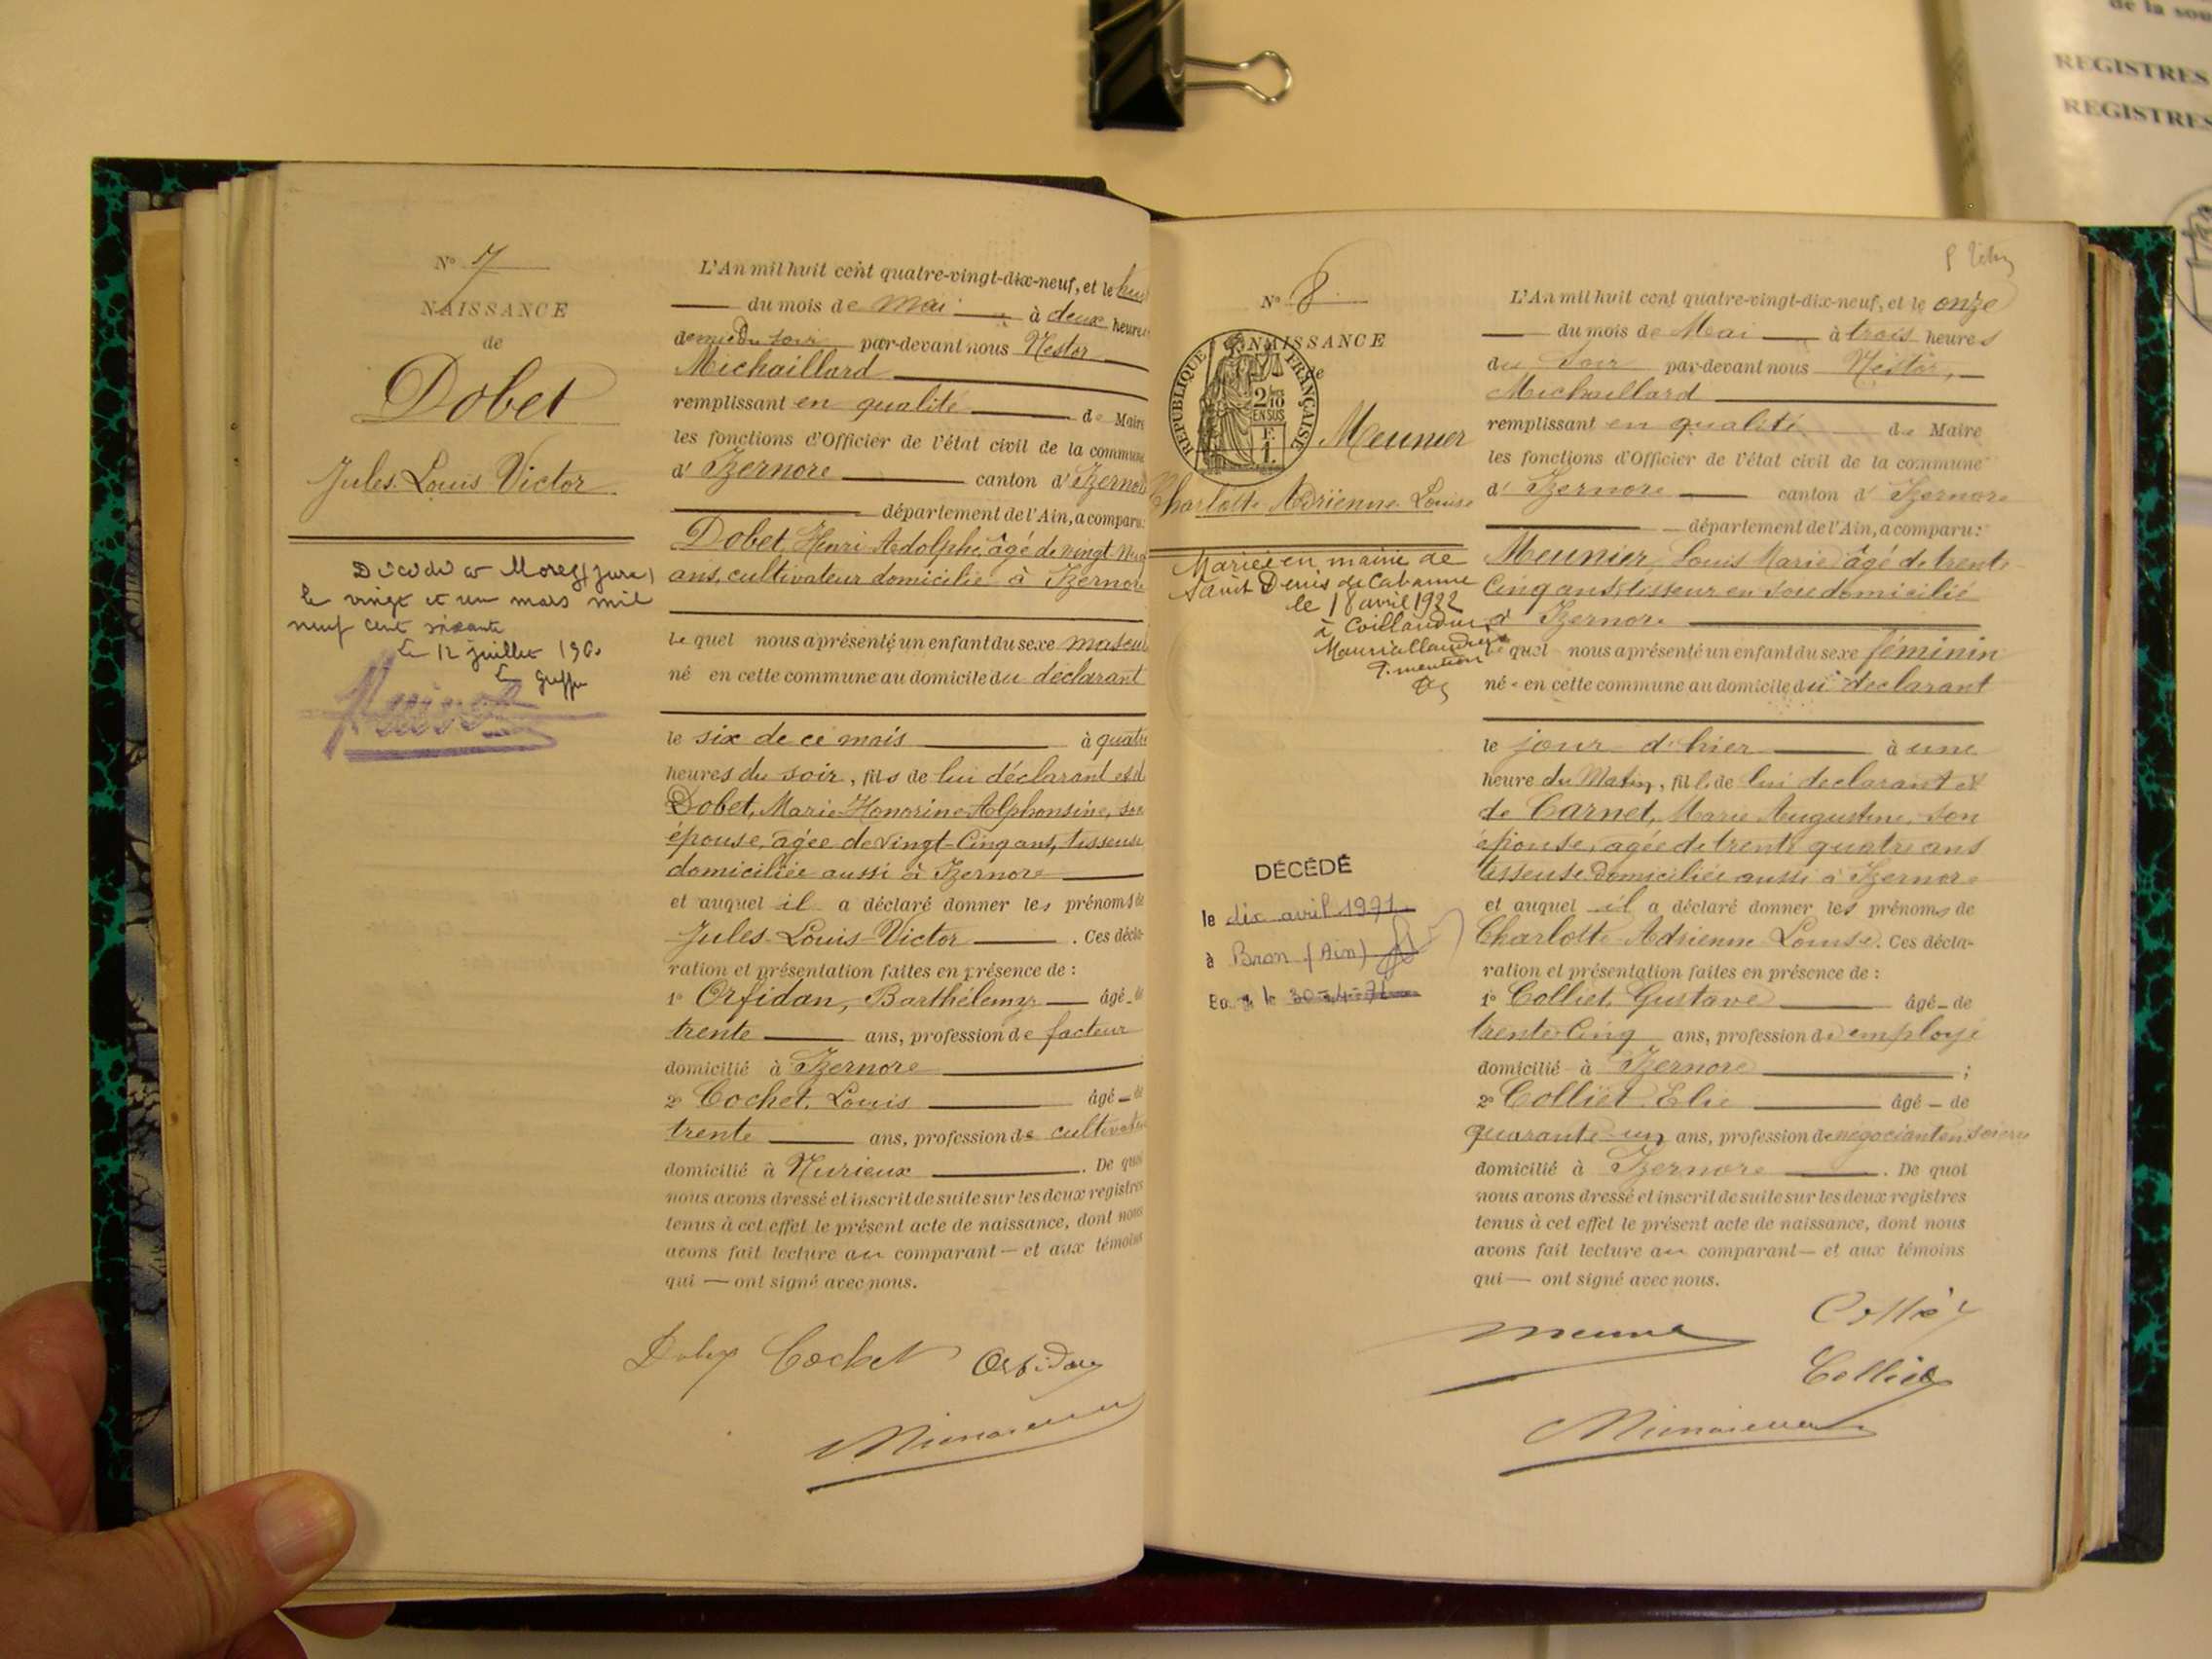 de la sou
REGISTRES
REGISTRES
N° 7
NAISSANCE
de
Dobet
Jules Louis Victor
Décédé à Morez (Jura)
le vingt et un mars mil
neuf cent soixante
Le 12 juillet 1960
L'An mil huit cent quatre-vingt-dix-neuf, et le huit
du mois de Mai à deux heures
demie du soir par-devant nous Nestor
Michaillard
remplissant en qualité de Maire
les fonctions d'Officier de l'état civil de la commune
d' Izernore canton d'Izernore
département de l'Ain, a comparu:
Dobet, Henri Adolphe, âgé de vingt-neuf
ans, cultivateur domicilié à Izernore
lequel nous a présenté un enfant du sexe mascul
né en cette commune au domicile du déclarant
le six de ce mois à quatre
heures du soir, fils de lui déclarant et d
Dobet, Marie-Honorine-Alphonsine, son
épouse, âgée de vingt-cinq ans, tisseuse
domiciliée aussi à Izernore
et auquel il a déclaré donner les prénoms de
Jules-Louis-Victor. Ces décla-
ration et présentation faites en présence de :
1° Orfidan, Barthélemy âgé de
trente ans, profession de facteur
domicilié à Izernore
2° Cochet, Louis âgé de
trente ans, profession de cultivateur
domicilié à Nurieux. De quoi
nous avons dressé et inscrit de suite sur les deux registres
tenus à cet effet le présent acte de naissance, dont nous
avons fait lecture au comparant — et aux témoins
qui — ont signé avec nous.
Dobet Cochet Orfidan
N° 8
NAISSANCE
de
REPUBLIQUE FRANÇAISE
2/10
EN SUS
Meunier
Charlotte Adrienne Louise
Mariée en mairie de
Saint Denis de Cabanne
le 18 avril 1922
à
P. mention
DÉCÉDÉ
le dix avril 1971
à Bron (Ain)
le 30-4-71
L'An mil huit cent quatre-vingt-dix-neuf, et le onze
du mois de Mai à trois heures
du soir par-devant nous Nestor,
Michaillard
remplissant en qualité de Maire
les fonctions d'Officier de l'état civil de la commune
d' Izernore canton d' Izernore
département de l'Ain, a comparu:
Meunier, Louis Marie âgé de trente
cinq ans, tisseur en soie domicilié
à Izernore
lequel nous a présenté un enfant du sexe féminin
né en cette commune au domicile du déclarant
le jour d'hier à une
heure du Matin, fille de lui déclarant et
de Carnet, Marie Augustine, son
épouse, âgée de trente quatre ans
tisseuse domiciliée aussi à Izernore
et auquel il a déclaré donner les prénoms de
Charlotte Adrienne Louise. Ces décla-
ration et présentation faites en présence de :
1° Colliet, Gustave âgé — de
trente cinq ans, profession de employé
domicilié à Izernore ;
2° Colliet, Elie âgé — de
quarante-un ans, profession de négociant en soierie
domicilié à Izernore. De quoi
nous avons dressé et inscrit de suite sur les deux registres
tenus à cet effet le présent acte de naissance, dont nous
avons fait lecture au comparant — et aux témoins
qui — ont signé avec nous.
Colliet
Meunier
Colliet